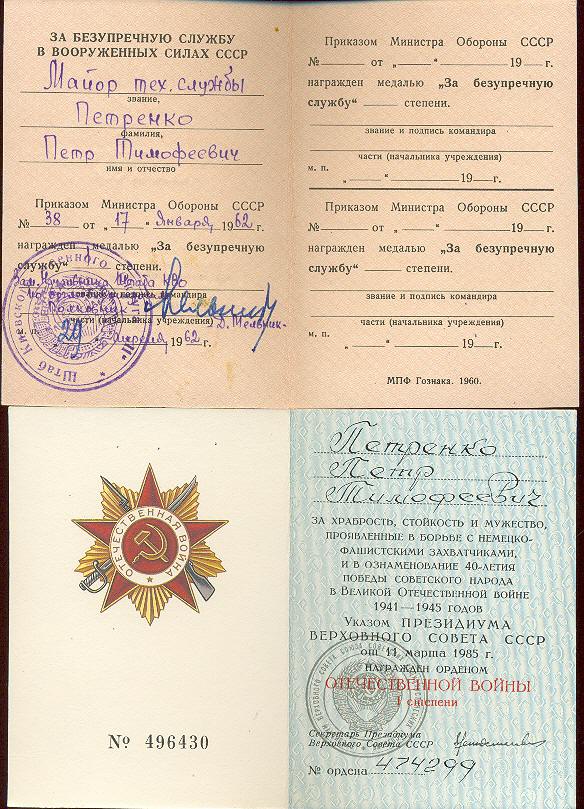 ЗА БЕЗУПРЕЧНУЮ СЛУЖБУ
В ВООРУЖЕННЫХ СИЛАХ СССР
Майор тех. службы
звание,
Петренко
фамилия,
Петр Тимофеевич
имя и отчество
Приказом Министра Обороны СССР
№ 38 от „ 17 “ января 1962 г.
награжден медалью „За безупречную
службу“ степени.
Зам. Начальника Штаба КВО
звание и подпись командира
Полковник
части (начальника учреждения) Д. Мельник
м. п. „ 29 “ апреля 1962 г.
Штаб Киевского военного
Приказом Министра Обороны СССР
№ от „ “ 19 г.
награжден медалью „За безупречную
службу“ степени.
звание и подпись командира
части (начальника учреждения)
м. п. „ “ 19 г.
Приказом Министра Обороны СССР
№ от „ “ 19 г.
награжден медалью „За безупречную
службу“ степени.
звание и подпись командира
части (начальника учреждения)
м. п. „ “ 19 г.
МПФ Гознака. 1960.
ОТЕЧЕСТВЕННАЯ ВОЙНА
№ 496430
Петренко
Петр
Тимофеевич
ЗА ХРАБРОСТЬ, СТОЙКОСТЬ И МУЖЕСТВО,
ПРОЯВЛЕННЫЕ В БОРЬБЕ С НЕМЕЦКО-
ФАШИСТСКИМИ ЗАХВАТЧИКАМИ,
И В ОЗНАМЕНОВАНИЕ 40-ЛЕТИЯ
ПОБЕДЫ СОВЕТСКОГО НАРОДА
В ВЕЛИКОЙ ОТЕЧЕСТВЕННОЙ ВОЙНЕ
1941—1945 ГОДОВ
Указом ПРЕЗИДИУМА
ВЕРХОВНОГО СОВЕТА СССР
от 11 марта 1985 г.
НАГРАЖДЕН ОРДЕНОМ
ОТЕЧЕСТВЕННОЙ ВОЙНЫ
I степени
Секретарь Президиума
Верховного Совета СССР
№ ордена 474299